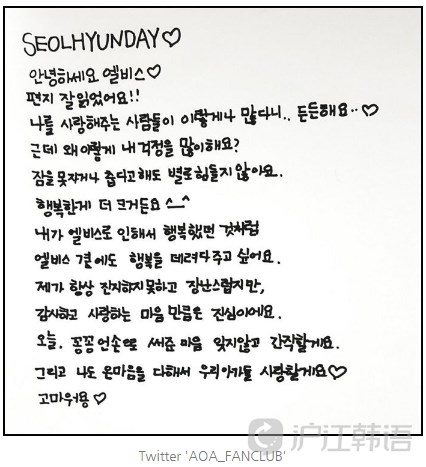 SEOLHYUNDAY♡
안녕하세요 엘비스♡
편지 잘읽었어요!!
나를 사랑해주는 사람들이 이렇게나 많다니.. 든든해요..♡
근데 왜이렇게 내걱정을 많이해요?
잠을못자거나 춥다고해도 별로힘들지 않아요.
행복한게 더 크거든요 ^_^
내가 엘비스로 인해서 행복했던 것처럼
엘비스 곁에도 행복을 데려다주고 싶어요.
제가 항상 진지하지못하고 장난스럽지만,
감사하고 사랑하는 마음 만큼은 진심이에요.
오늘. 꽁꽁언손으로 써준마음 잊지않고 간직할게요.
그리고 나도 온마음을 다해서 우리아가들 사랑할게요♡
고마워용♡
沪江韩语
Twitter 'AOA_FANCLUB'